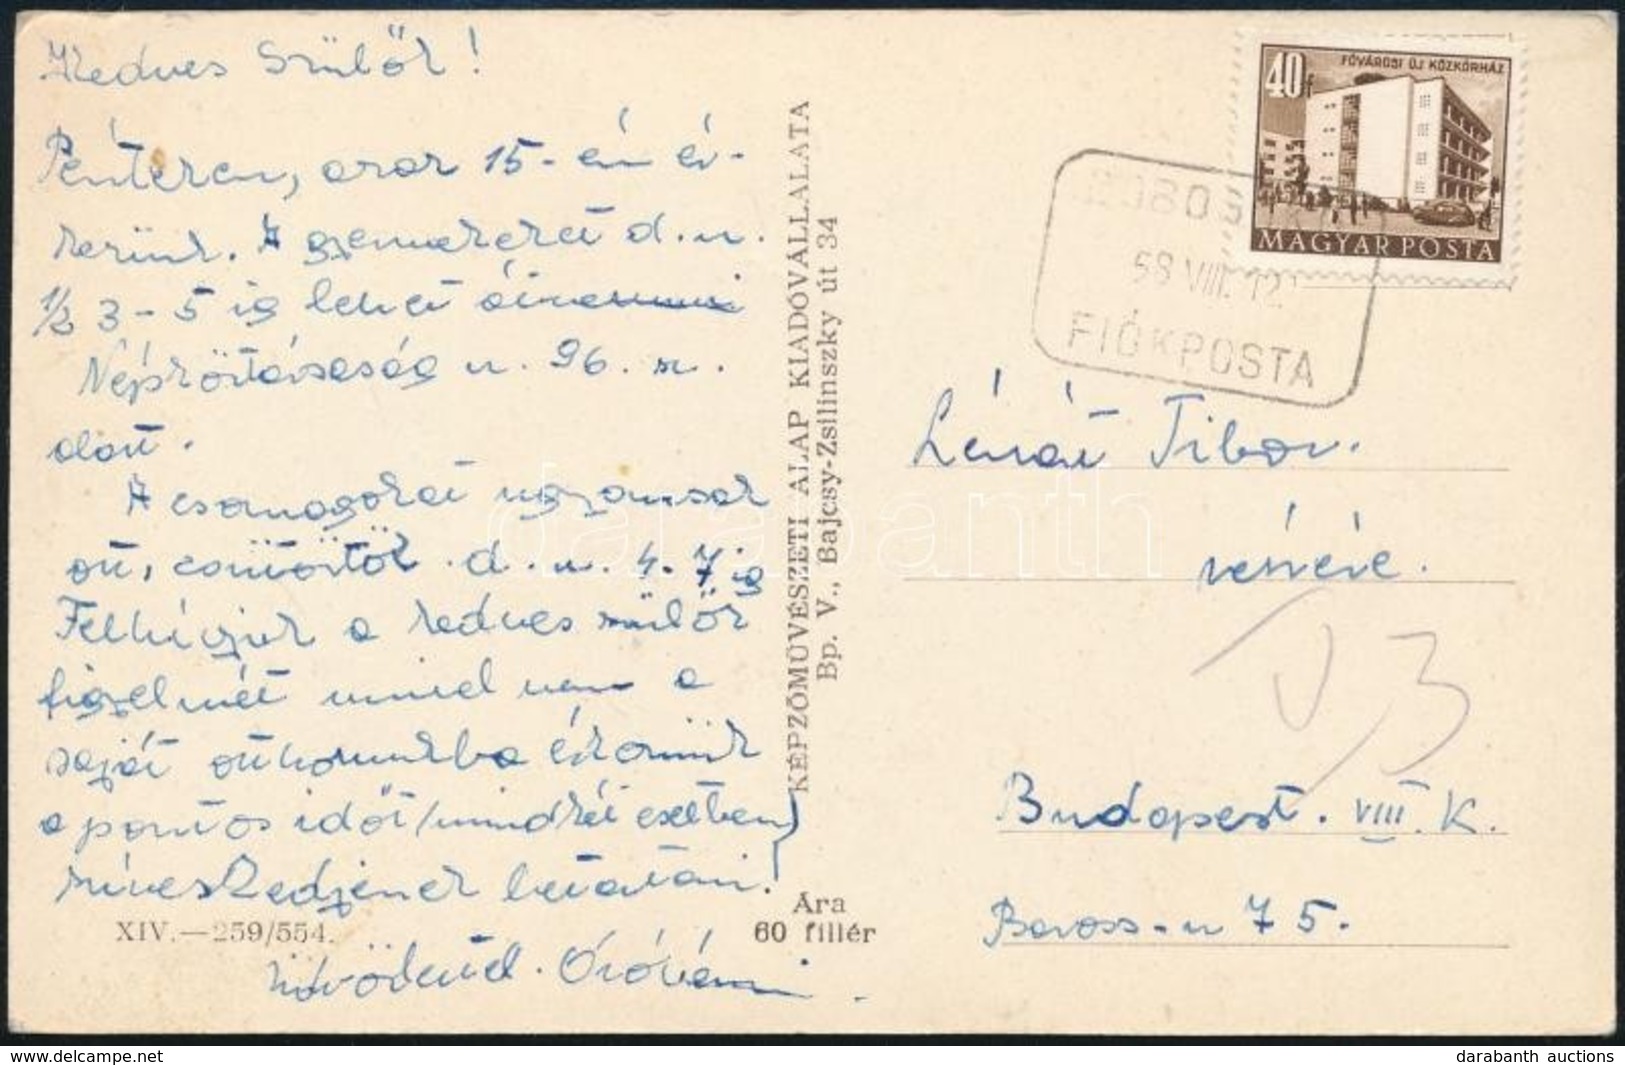 Kedves Szülők!
Pénteken, azaz 15-én ér-
kezünk. A gyemekeket d.u.
1/2 3-5 ig lehet átvenni
Népköztársaság u. 96. sz.
alatt.
A csomagokat ugyancsak
ott, csütörtök d.u. 4-7 ig
Felhívjuk a kedves szülők
figyelmét mivel nem a
saját otthonunkba érkezünk
a pontos időt/mindkét esetben)
szíveskedjenek betartani!
Üdvözlettel. Óvónéni.
XIV.—259/554.
Ára
60 fillér
KÉPZŐMŰVÉSZETI ALAP KIADÓVÁLLALATA
Bp. V., Bajcsy-Zsilinszky út 34
40f
FŐVÁROSI ÚJ KÖZKÓRHÁZ
MAGYAR POSTA
58 VIII. 12
FIÓKPOSTA
Tibor
részére.
Budapest. VIII. K.
Baross-u 75.
darabanth
www.delcampe.net
darabanth auctions